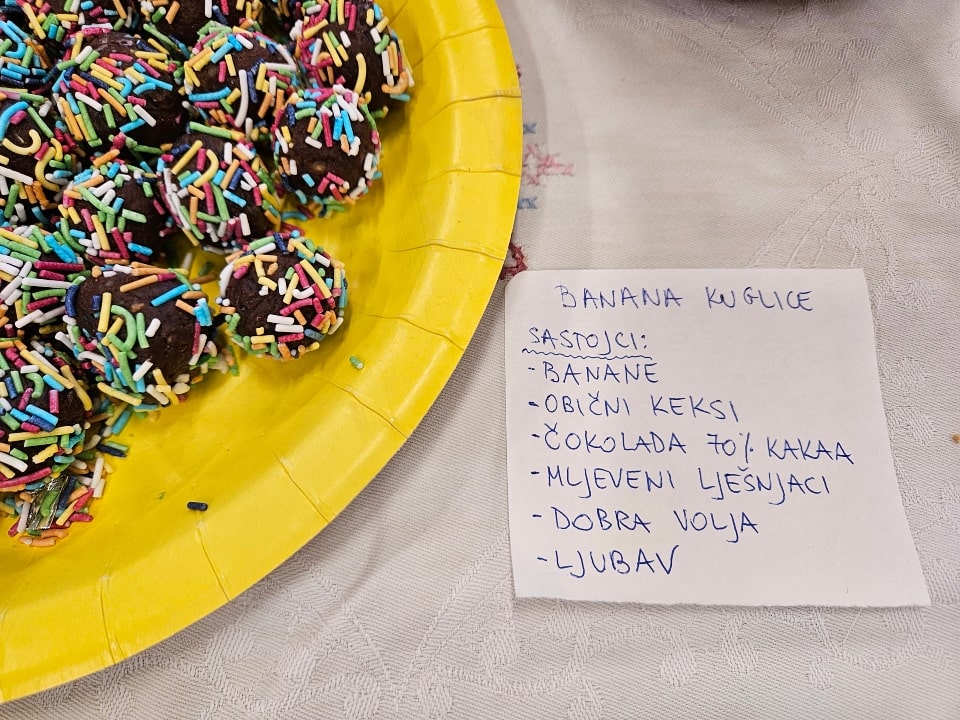 BANANA KUGLICE
SASTOJCI:
- BANANE
- OBIČNI KEKSI
- ČOKOLADA 70% KAKAA
- MLJEVENI LJEŠNJACI
- DOBRA VOLJA
- LJUBAV